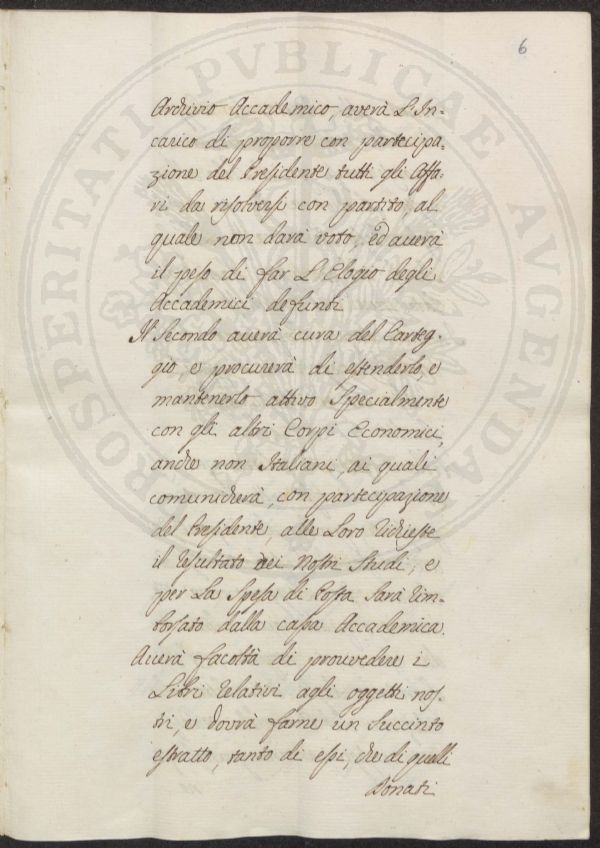 6
Archivio Accademico, averà L'In-
carico di proporre con partecipa-
zione del Presidente tutti gli Affa-
ri da risolversi con partito, al
quale non darà voto, ed averà
il peso di far L'Elogio degli
Accademici defunti
Il Secondo averà cura del Carteg-
gio, e procurerà di estenderlo, e
mantenerlo attivo Specialmente
con gli altri Corpi Economici,
anche non Italiani, ai quali
comunicherà, con partecipazione
del Presidente, alle Loro richieste
il resultato dei Nostri Studi, e
per La Spesa di Posta Sarà rim-
borsato dalla cassa Accademica.
Averà facoltà di provvedere i
Libri relativi agli oggetti nos-
tri, e dovrà farne un Succinto
estratto, tanto di essi, che di quelli
Donati
PROSPERITATI PVBLICAE AVGENDAE